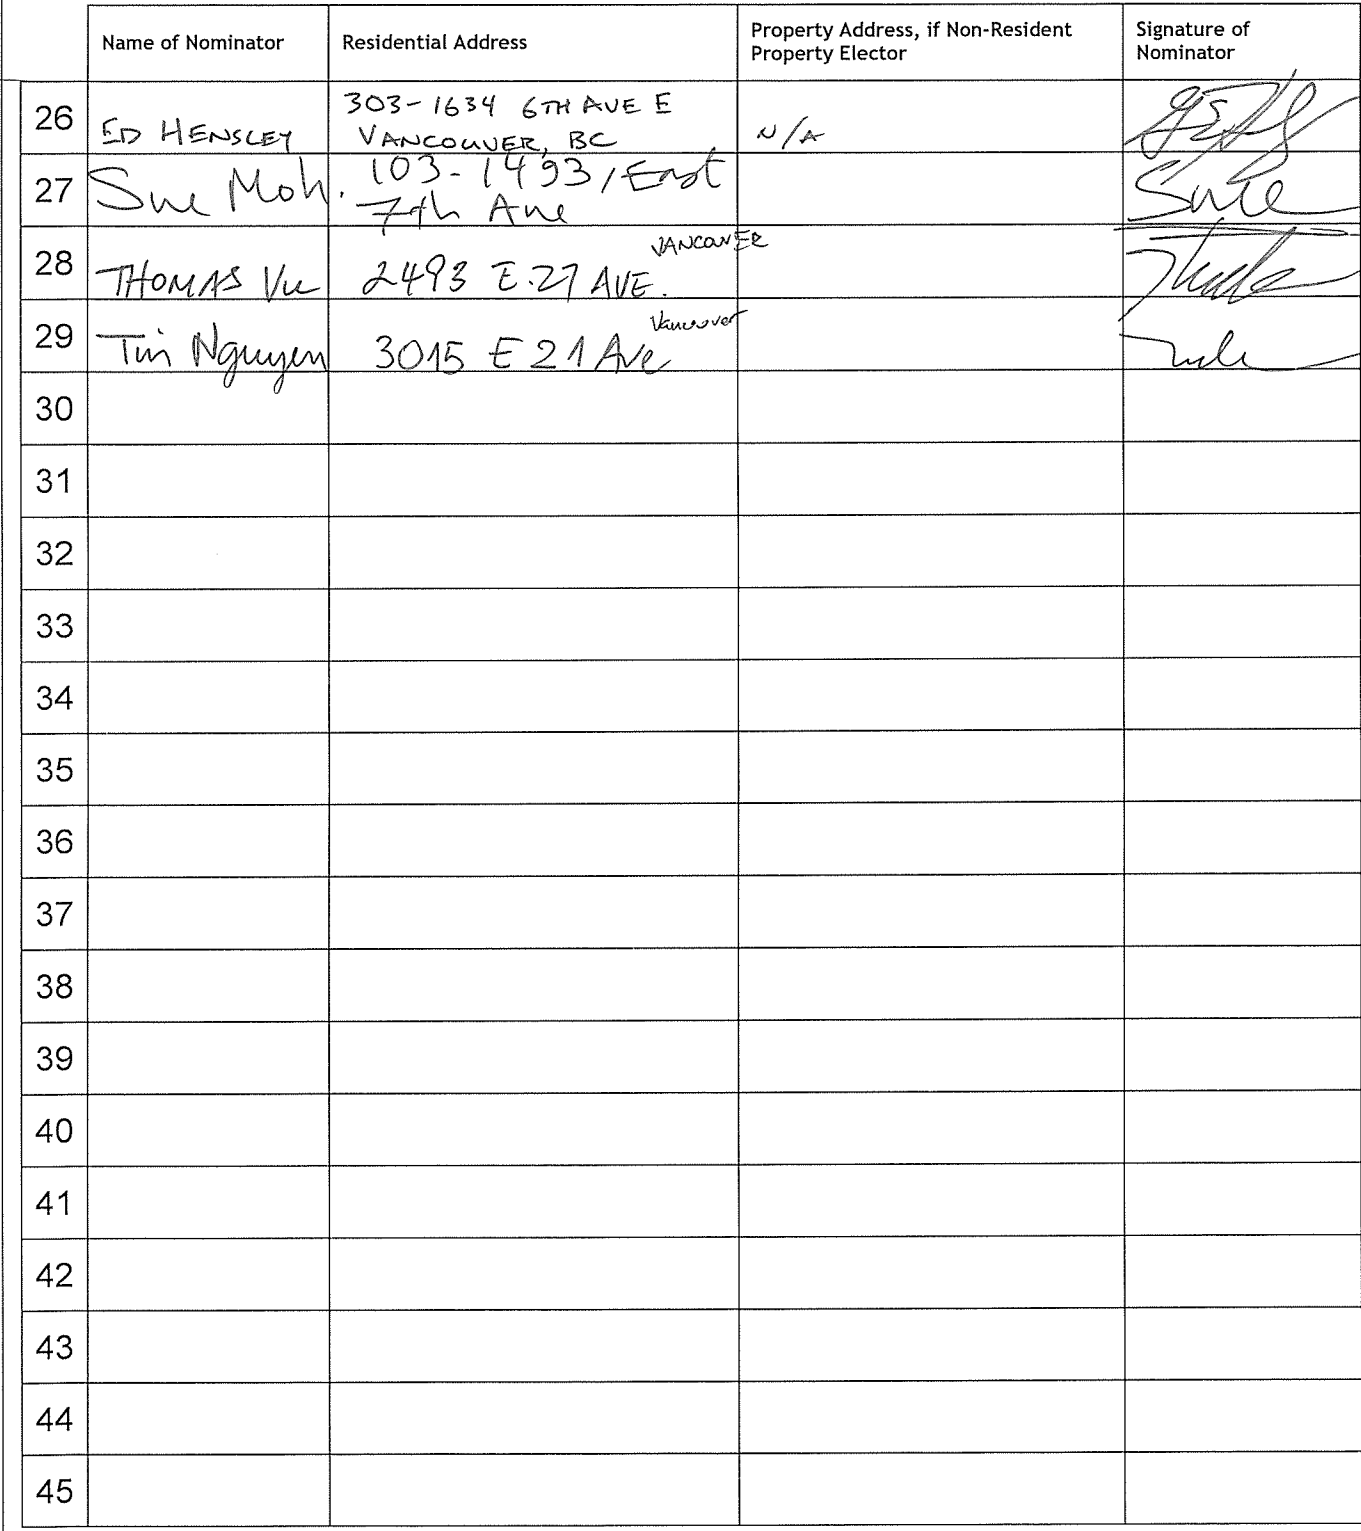 Name of Nominator
Residential Address
Property Address, if Non-Resident
Property Elector
Signature of
Nominator
26
ED HENSLEY
303-1634 6TH AVE E
VANCOUVER, BC
N/A
27
Sue Moh.
103-1493, East
7th Ave
Sue
28
THOMAS Vu
2493 E.27 AVE.
VANCOUVER
29
Tin Nguyen
3015 E 21 Ave
Vancouver
30
31
32
33
34
35
36
37
38
39
40
41
42
43
44
45